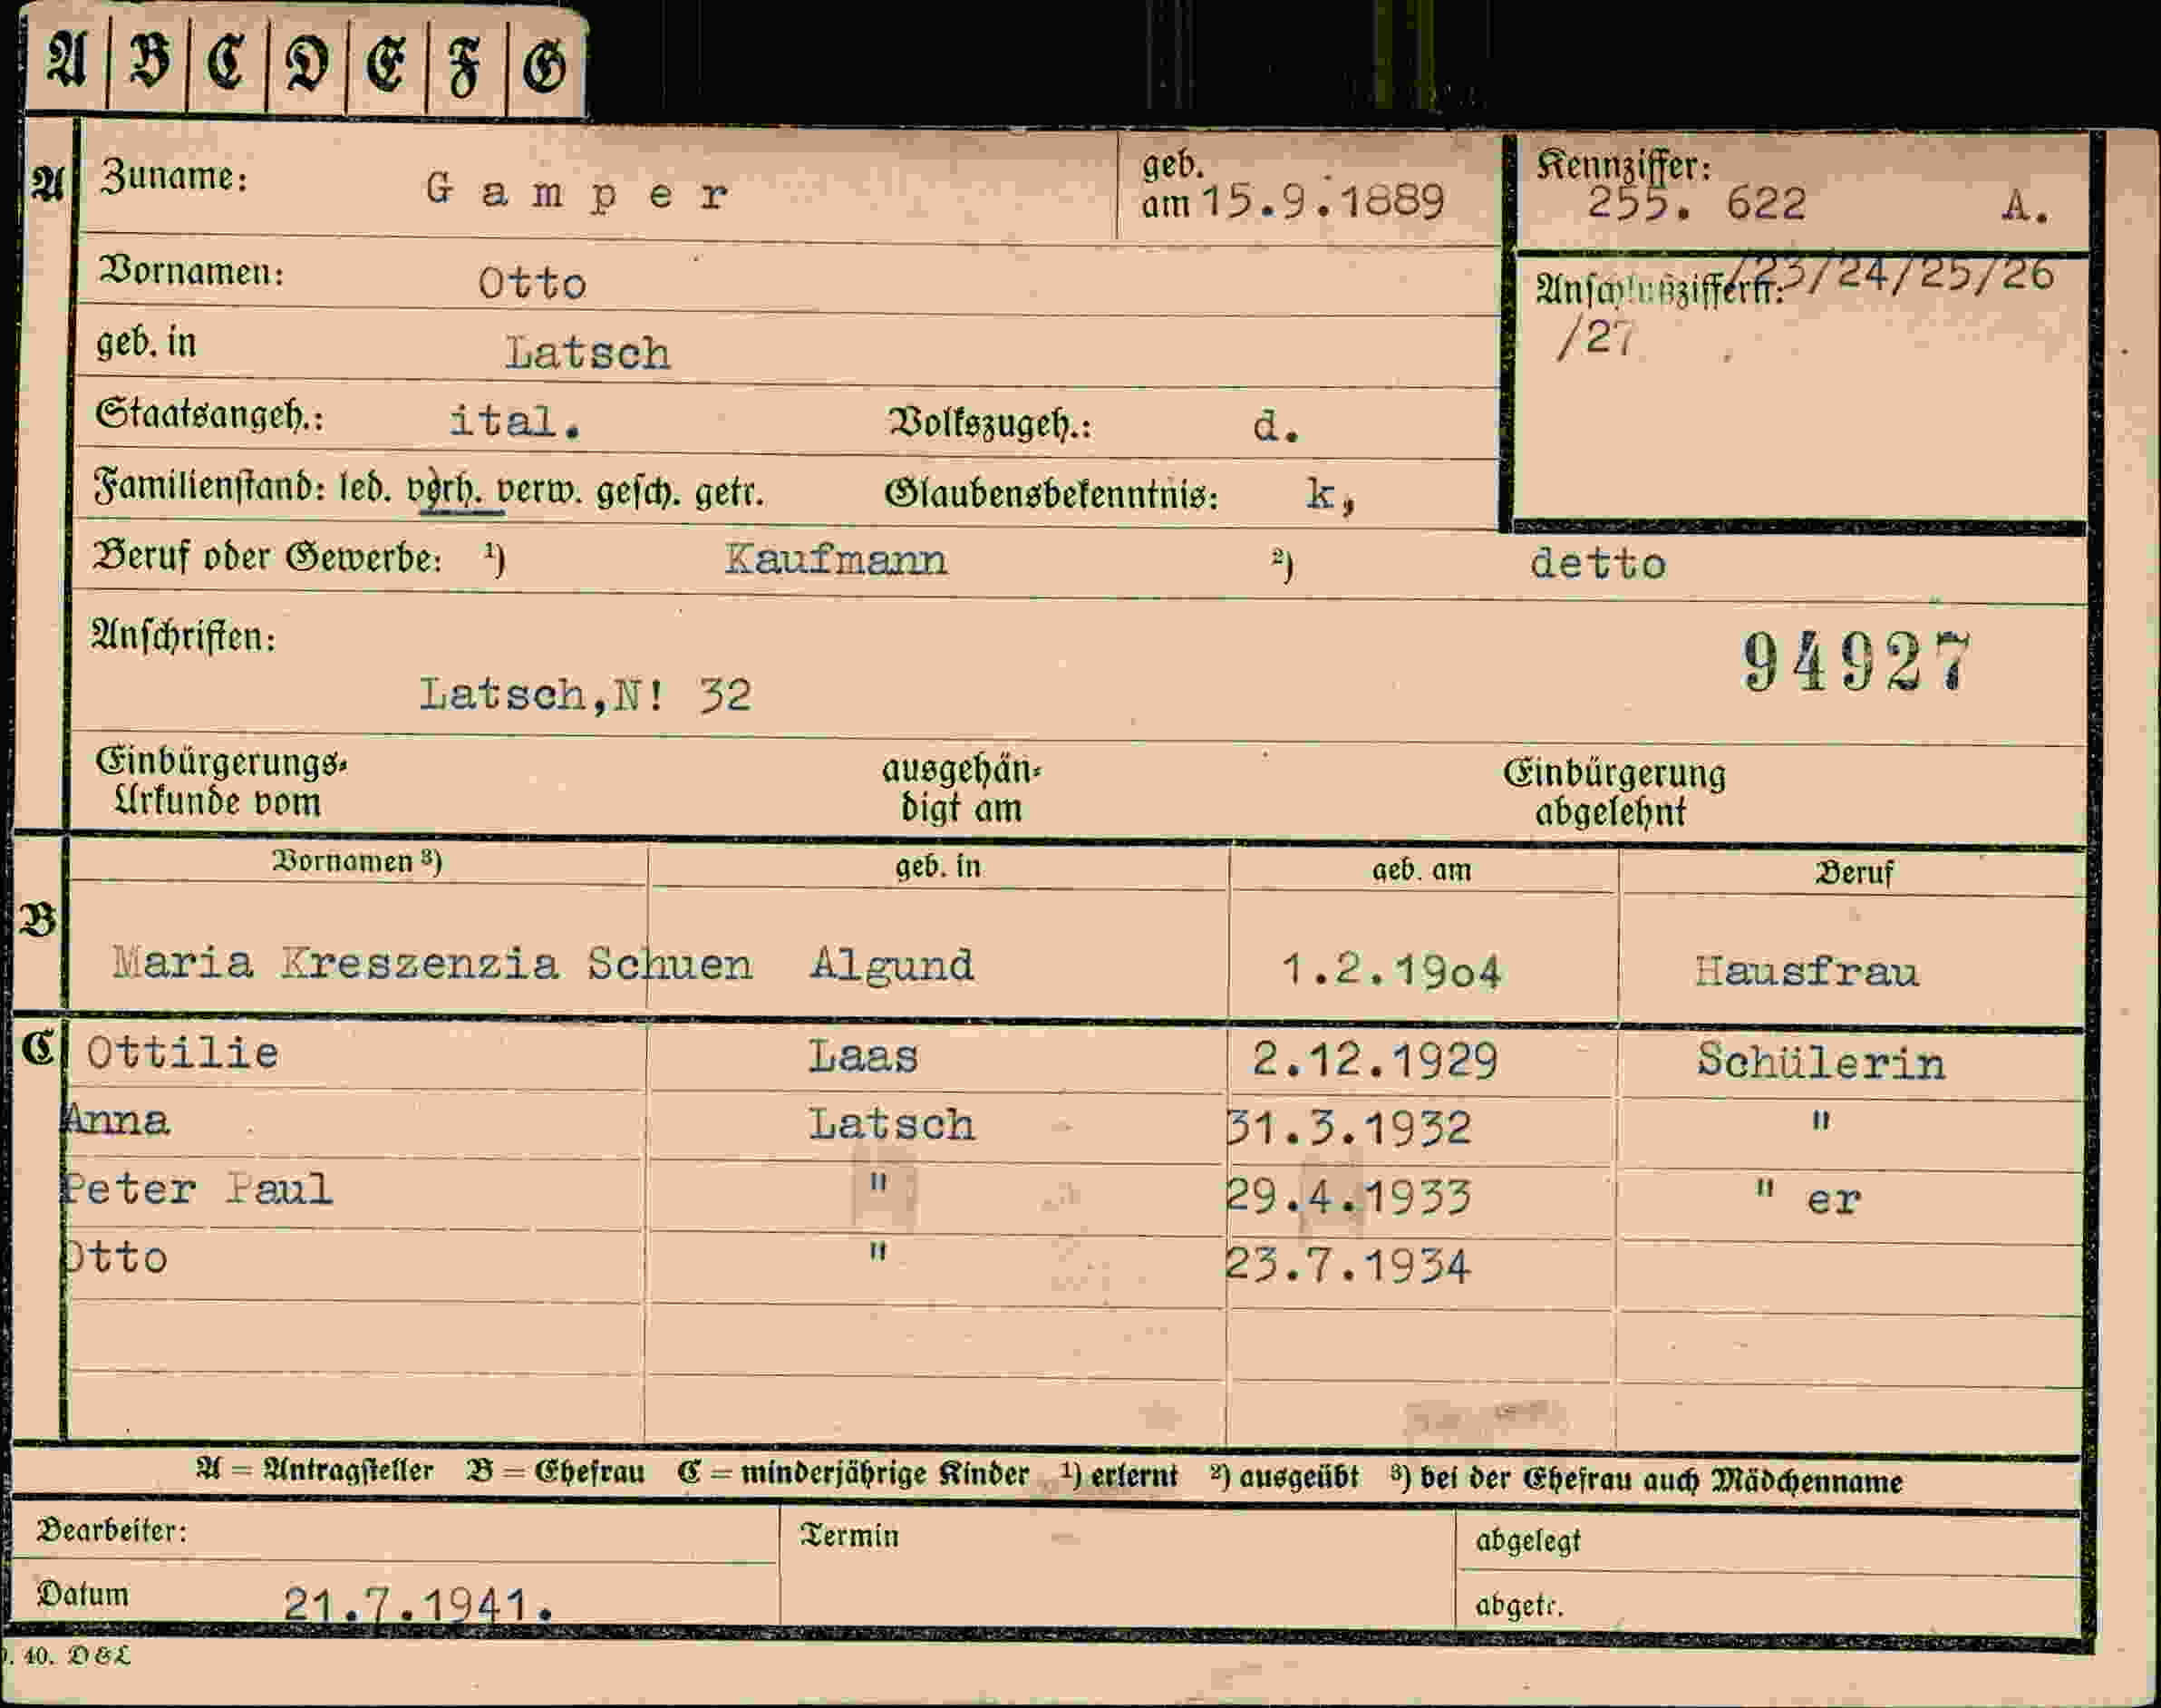 A B C D E F G
A Zuname: Gamper geb. am 15.9.1889 Kennziffer: 255. 622 A.
Vornamen: Otto Anschlußziffern: /23/24/25/26
/27
geb. in Latsch
Staatsangeh.: ital. Volkszugeh.: d.
Familienstand: led. verh. verw. gesch. getr. Glaubensbekenntnis: k,
Beruf oder Gewerbe: 1) Kaufmann 2) detto
Anschriften: 94927
Latsch,N! 32
Einbürgerungs- ausgehän- Einbürgerung
Urkunde vom digt am abgelehnt
Vornamen 3) geb. in geb. am Beruf
B Maria Kreszenzia Schuen Algund 1.2.19o4 Hausfrau
C Ottilie Laas 2.12.1929 Schülerin
Anna Latsch 31.3.1932 "
Peter Paul " 29.4.1933 " er
Otto " 23.7.1934
A = Antragsteller B = Ehefrau C = minderjährige Kinder 1) erlernt 2) ausgeübt 3) bei der Ehefrau auch Mädchenname
Bearbeiter: Termin abgelegt
Datum 21.7.1941. abgetr.
40. D&L